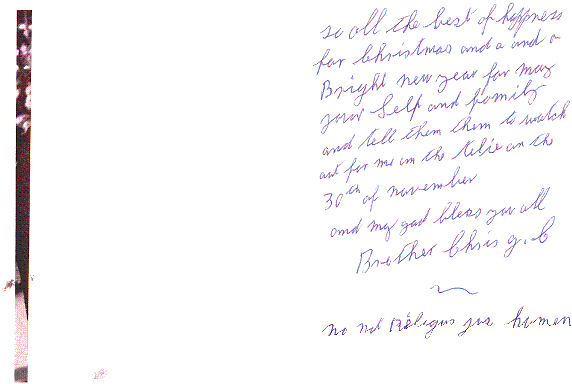 so all the best of happness
for Christmas and a and a
Bright new year for may
your Self and family
and tell them them to watch
out for me on the telie on the
30th of november
and my god bless you all
Brother Chris g. C
no not Religus jus human